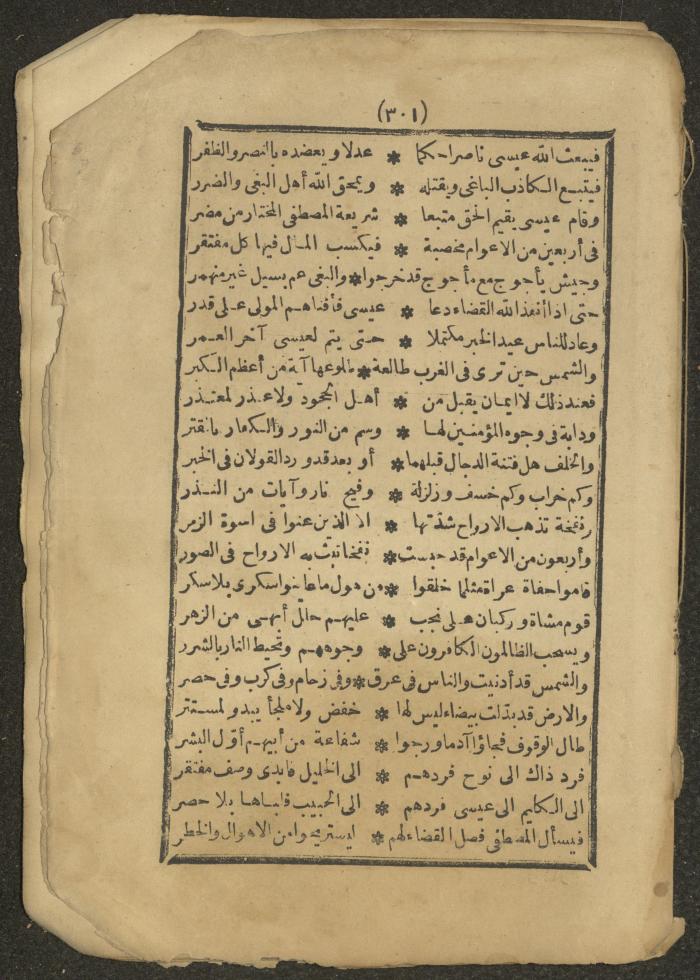 (٣٠١)
فيبعث الله عيسى ناصرا حكما * عدلا ويعضده بالنصر والظفر
فيتبع الكاذب الباغى ويقتله * ويمحق الله أهل البغى والضرر
وقام عيسى يقيم الحق متبعا * شريعة المصطفى المختار من مضر
فى أربعين من الاعوام مخصبة * فيكسب المال فيها كل مفتقر
وجيش يأجوج مع مأجوج قد خرجوا * والبغى عم بسيل غير منهمر
حتى اذا أنفذ الله القضاء دعا * عيسى فأفناهم المولى على قدر
وعاد للناس عيد الخير مكتملا * حتى يتم لعيسى آخر العمر
والشمس حين ترى فى الغرب طالعة * طلوعها آية من أعظم الكبر
فعند ذلك لا ايمان يقبل من * أهل الجحود ولا عذر لمعتذر
ودابة فى وجوه المؤمنين لها * وسم من النور والكفار بالقتر
والخلف هل فتنة الدجال قبلهما * أو بعد قد ورد القولان فى الخبر
وكم خراب وكم خسف وزلزلة * وفيح نار وآيات من النذر
ونفخة تذهب الارواح شدتها * الا الذين عنوا فى اسوة الزمر
وأربعون من الاعوام قد حبست * نفخا تبث به الارواح فى الصور
قاموا حفاة عراة مثلما خلقوا * من هول ما عاينوا سكرى بلا سكر
قوم مشاة وركبان على نجب * عليهم حلل أبهى من الزهر
ويسحب الظالمون الكافرون على * وجوههم وتحيط النار بالشرر
والشمس قد أدنيت والناس فى عرق * وفى زحام وفى كرب وفى حصر
والارض قد بدّلت بيضاء ليس لها * خفض ولا ملجأ يبدو لمستتر
طال الوقوف فجاؤا آدما ورجوا * شفاعة من أبيهم أوّل البشر
فرد ذاك الى نوح فردهم * الى الخليل فابدى وصف مفتقر
الى الكليم الى عيسى فردهم * الى الحبيب فلباها بلا حصر
فيسأل المصطفى فصل القضاء لهم * ليستريحوا من الاهوال والخطر